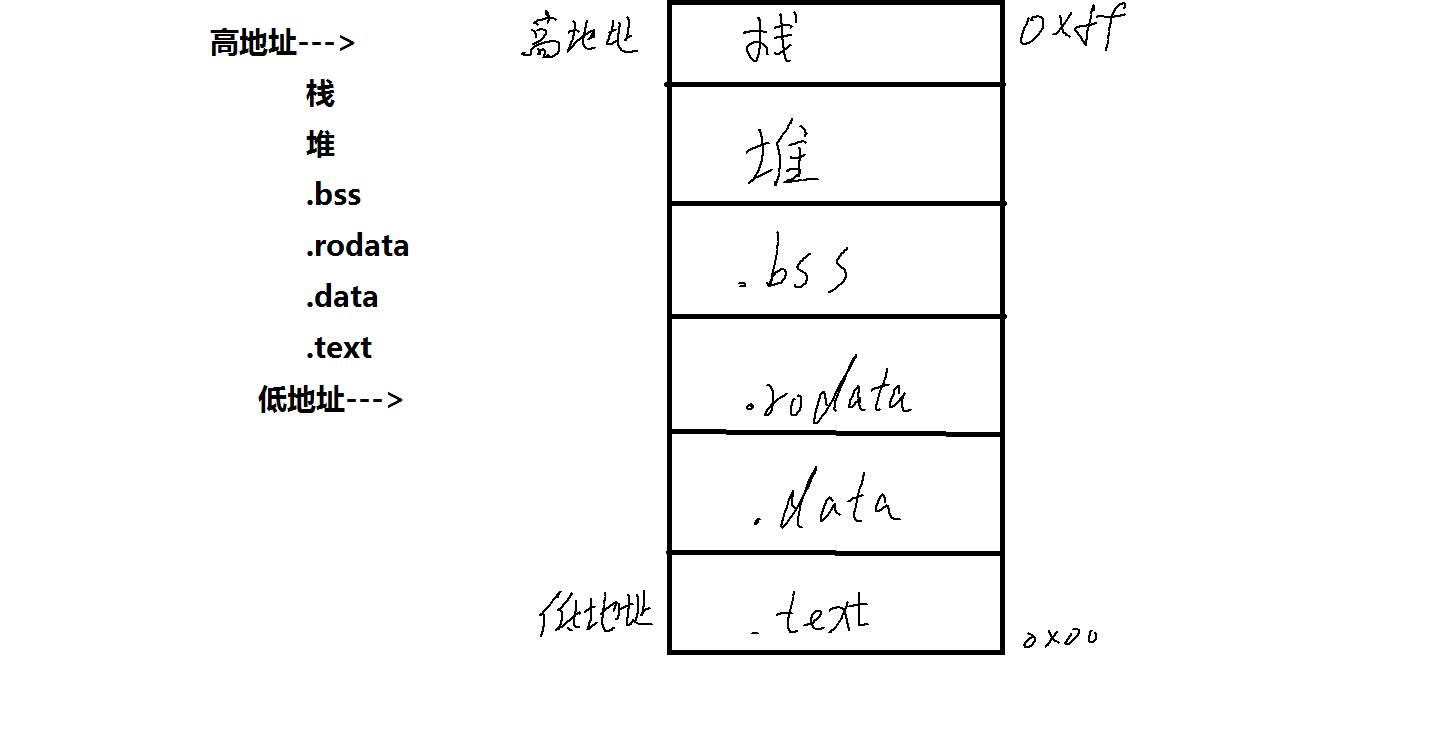 高地址--->
栈
堆
.bss
.rodata
.data
.text
低地址--->
高地址 栈 0xff
堆
.bss
.rodata
.data
低地址 .text 0x00